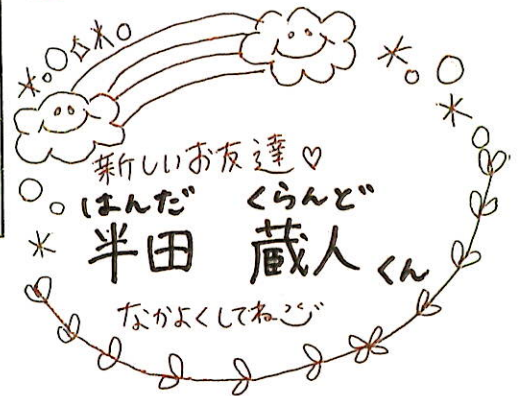 新しいお友達♡
はんだ くらんど
半田 蔵人 くん
なかよくしてね